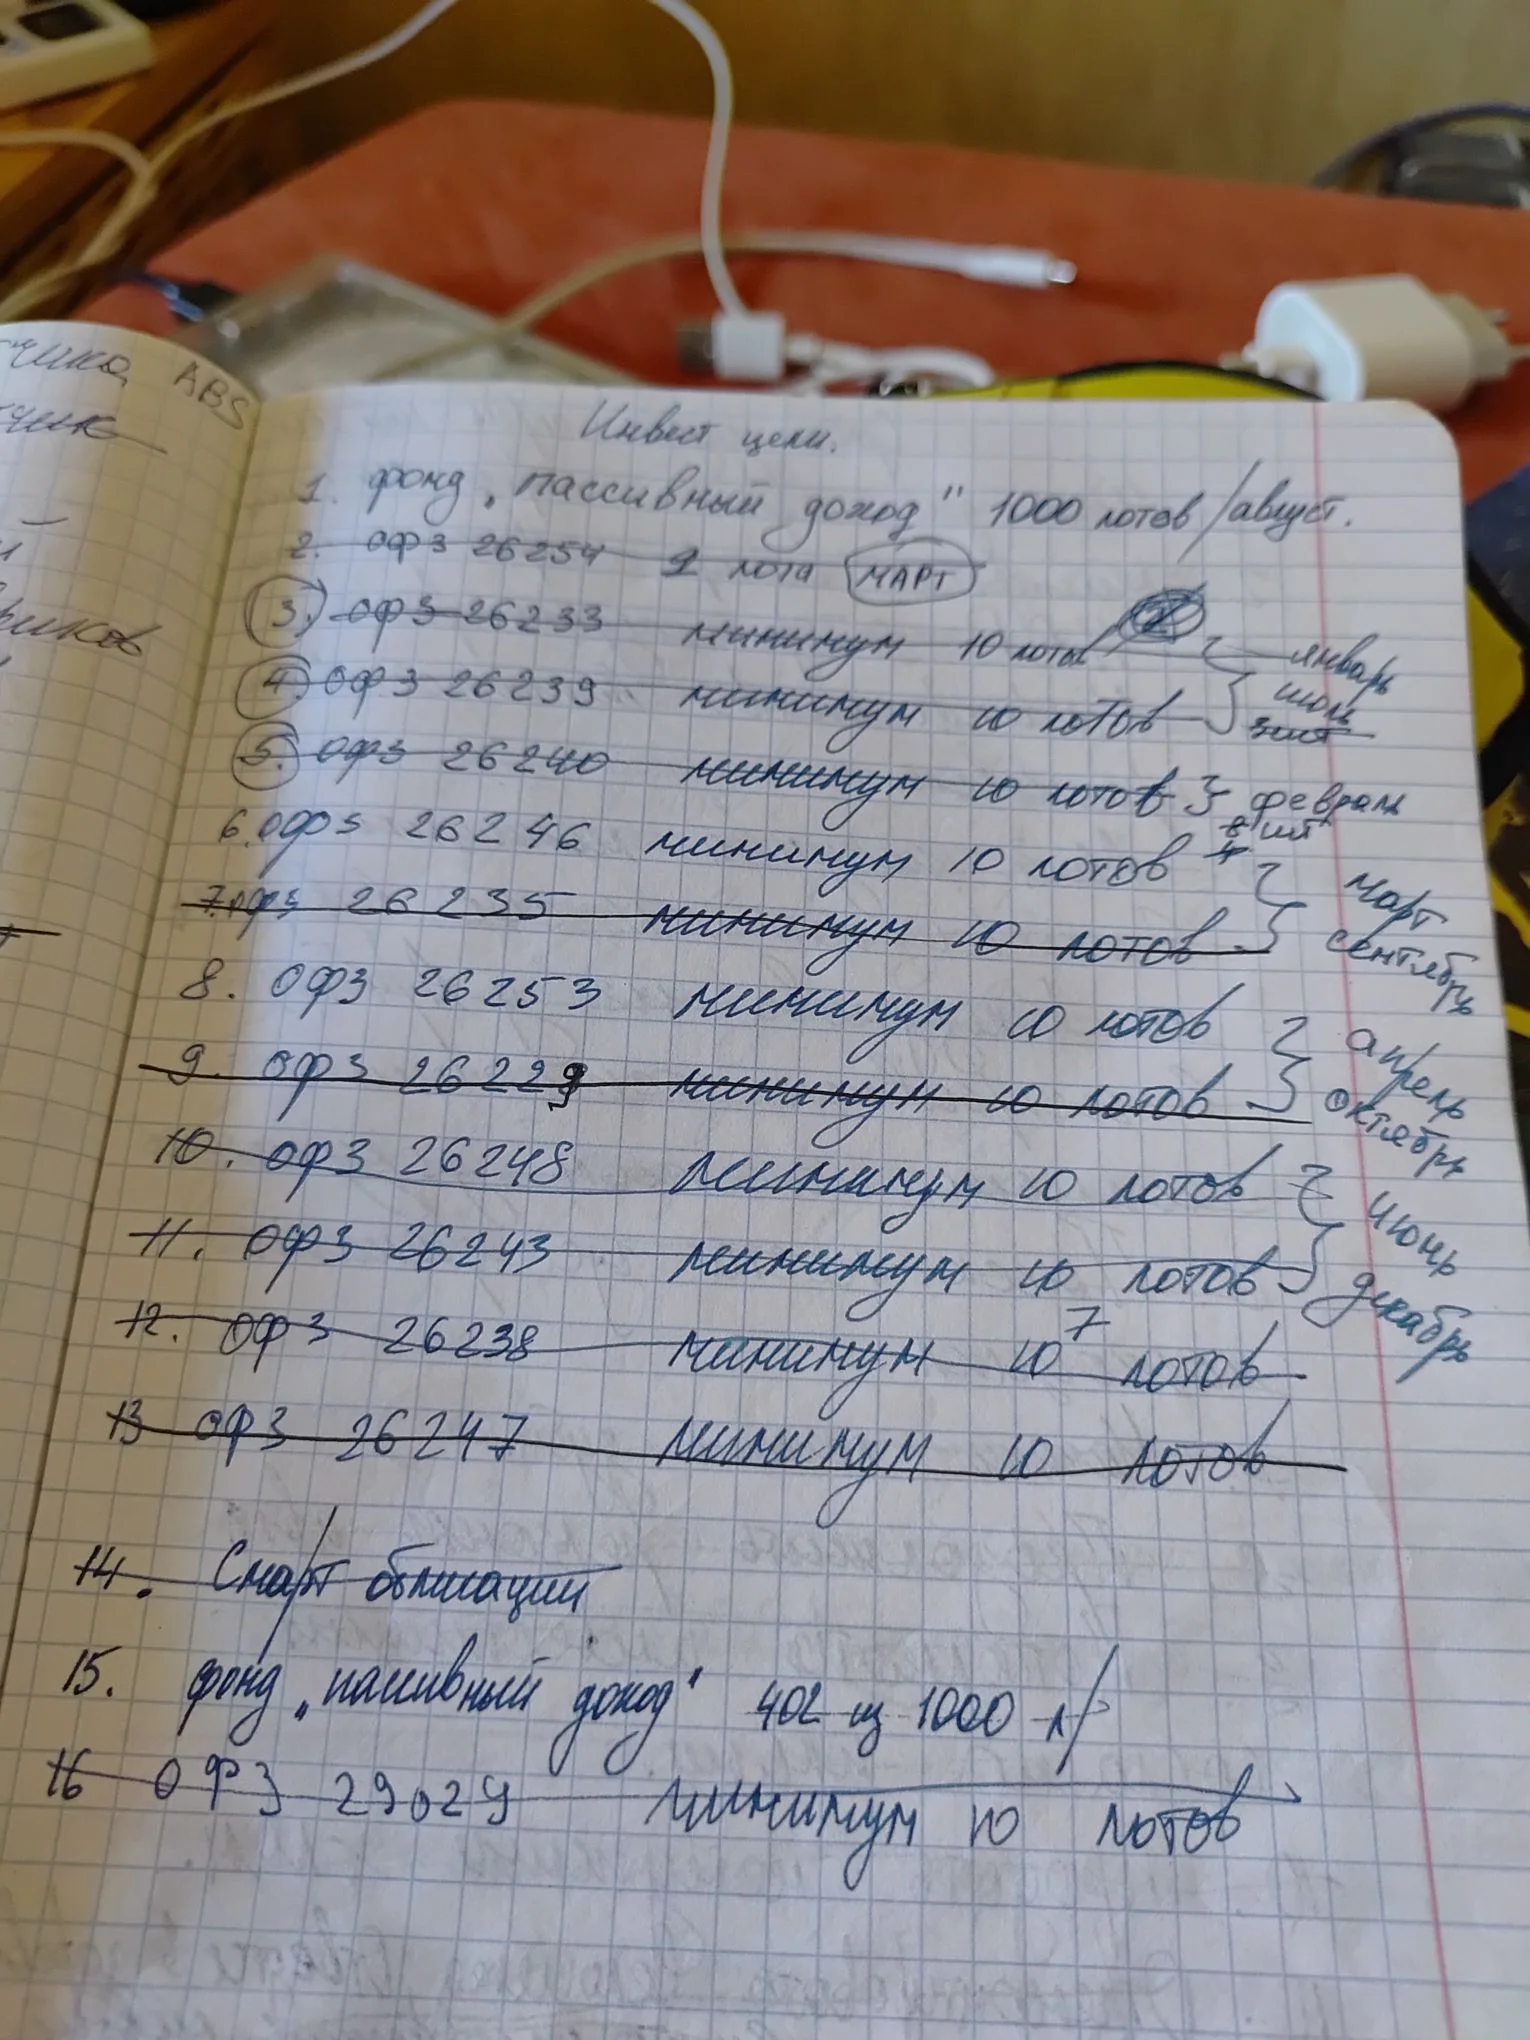 АВS
Инвест цели.
1. фонд „пассивный доход" 1000 лотов / август.
2. ОФЗ 26254 2 лота МАРТ
3. ОФЗ 26233 минимум 10 лотов январь
4. ОФЗ 26239 минимум 10 лотов июль
5. ОФЗ 26240 минимум 10 лотов февраль
6. ОФЗ 26246 минимум 10 лотов март
7. ОФЗ 26235 минимум 10 лотов сентябрь
8. ОФЗ 26253 минимум 10 лотов апрель
9. ОФЗ 26229 минимум 10 лотов октябрь
10. ОФЗ 26248 минимум 10 лотов июнь
11. ОФЗ 26243 минимум 10 лотов декабрь
12. ОФЗ 26238 минимум 10 7 лотов
13 ОФЗ 26247 минимум 10 лотов
14. Смарт облигации
15. фонд „пассивный доход" 402 из 1000 л
16 ОФЗ 29029 минимум 10 лотов